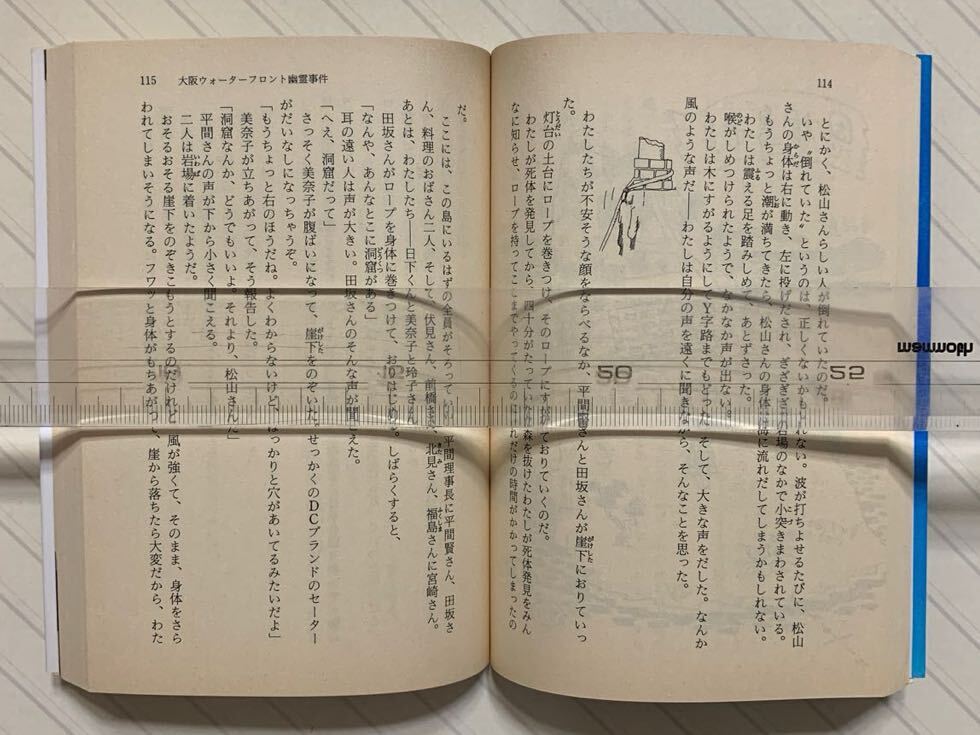 114
とにかく、松山さんらしい人が倒れていたのだ。
いや〝倒れていた〟というのは、正しくないかもしれない。波が打ちよせるたびに、松山
さんの身体は右に動き、左に投げだされ、ぎざぎざの岩場のなかで小突きまわされている。
もうちょっと潮が満ちてきたら、松山さんの身体は海に流れだしてしまうかもしれない。
わたしは震える足を踏みしめて、あとずさった。
喉がしめつけられたようで、なかなか声が出ない。
わたしは木にすがるようにしてY字路までもどった。そして、大きな声をだした。なんか
風のような声だ――わたしは自分の声を遠くに聞きながら、そんなことを思った。
わたしたちが不安そうな顔をならべるなか、平間賢さんと田坂さんが崖下におりていっ
た。
灯台の土台にロープを巻きつけ、そのロープにすがっておりていくのだ。
わたしが死体を発見してから、四十分がたっていた。森を抜けたわたしが死体発見をみん
なに知らせ、ロープを持ってここまでやってくるのにこれだけの時間がかかってしまったの
115 大阪ウォーターフロント幽霊事件
だ。
ここには、この島にいるはずの全員がそろっていた。平間理事長に平間賢さん、田坂さ
ん、料理のおばさん二人、そして、伏見さん、前橋さん、北見さん、福島さんに宮崎さん。
あとは、わたしたち――日下くんと美奈子と玲子さん。
田坂さんがロープを身体に巻きつけて、おりはじめた。しばらくすると、
「なんや、あんなとこに洞窟がある」
耳の遠い人は声が大きい。田坂さんのそんな声が聞こえた。
「へえ、洞窟だって」
さっそく美奈子が腹ばいになって、崖下をのぞいた。せっかくのDCブランドのセーター
がだいなしになっちゃうぞ。
「もうちょっと右のほうだね。よくわからないけど、ぽっかりと穴があいてるみたいだよ」
美奈子が立ちあがって、そう報告した。
「洞窟なんか、どうでもいいよ。それより、松山さんだ」
平間さんの声が下から小さく聞こえる。
二人は岩場に着いたようだ。
おそるおそる崖下をのぞきこもうとするのだけれど、風が強くて、そのまま、身体をさら
われてしまいそうになる。フワッと身体がもちあがって、崖から落ちたら大変だから、わた
50
52